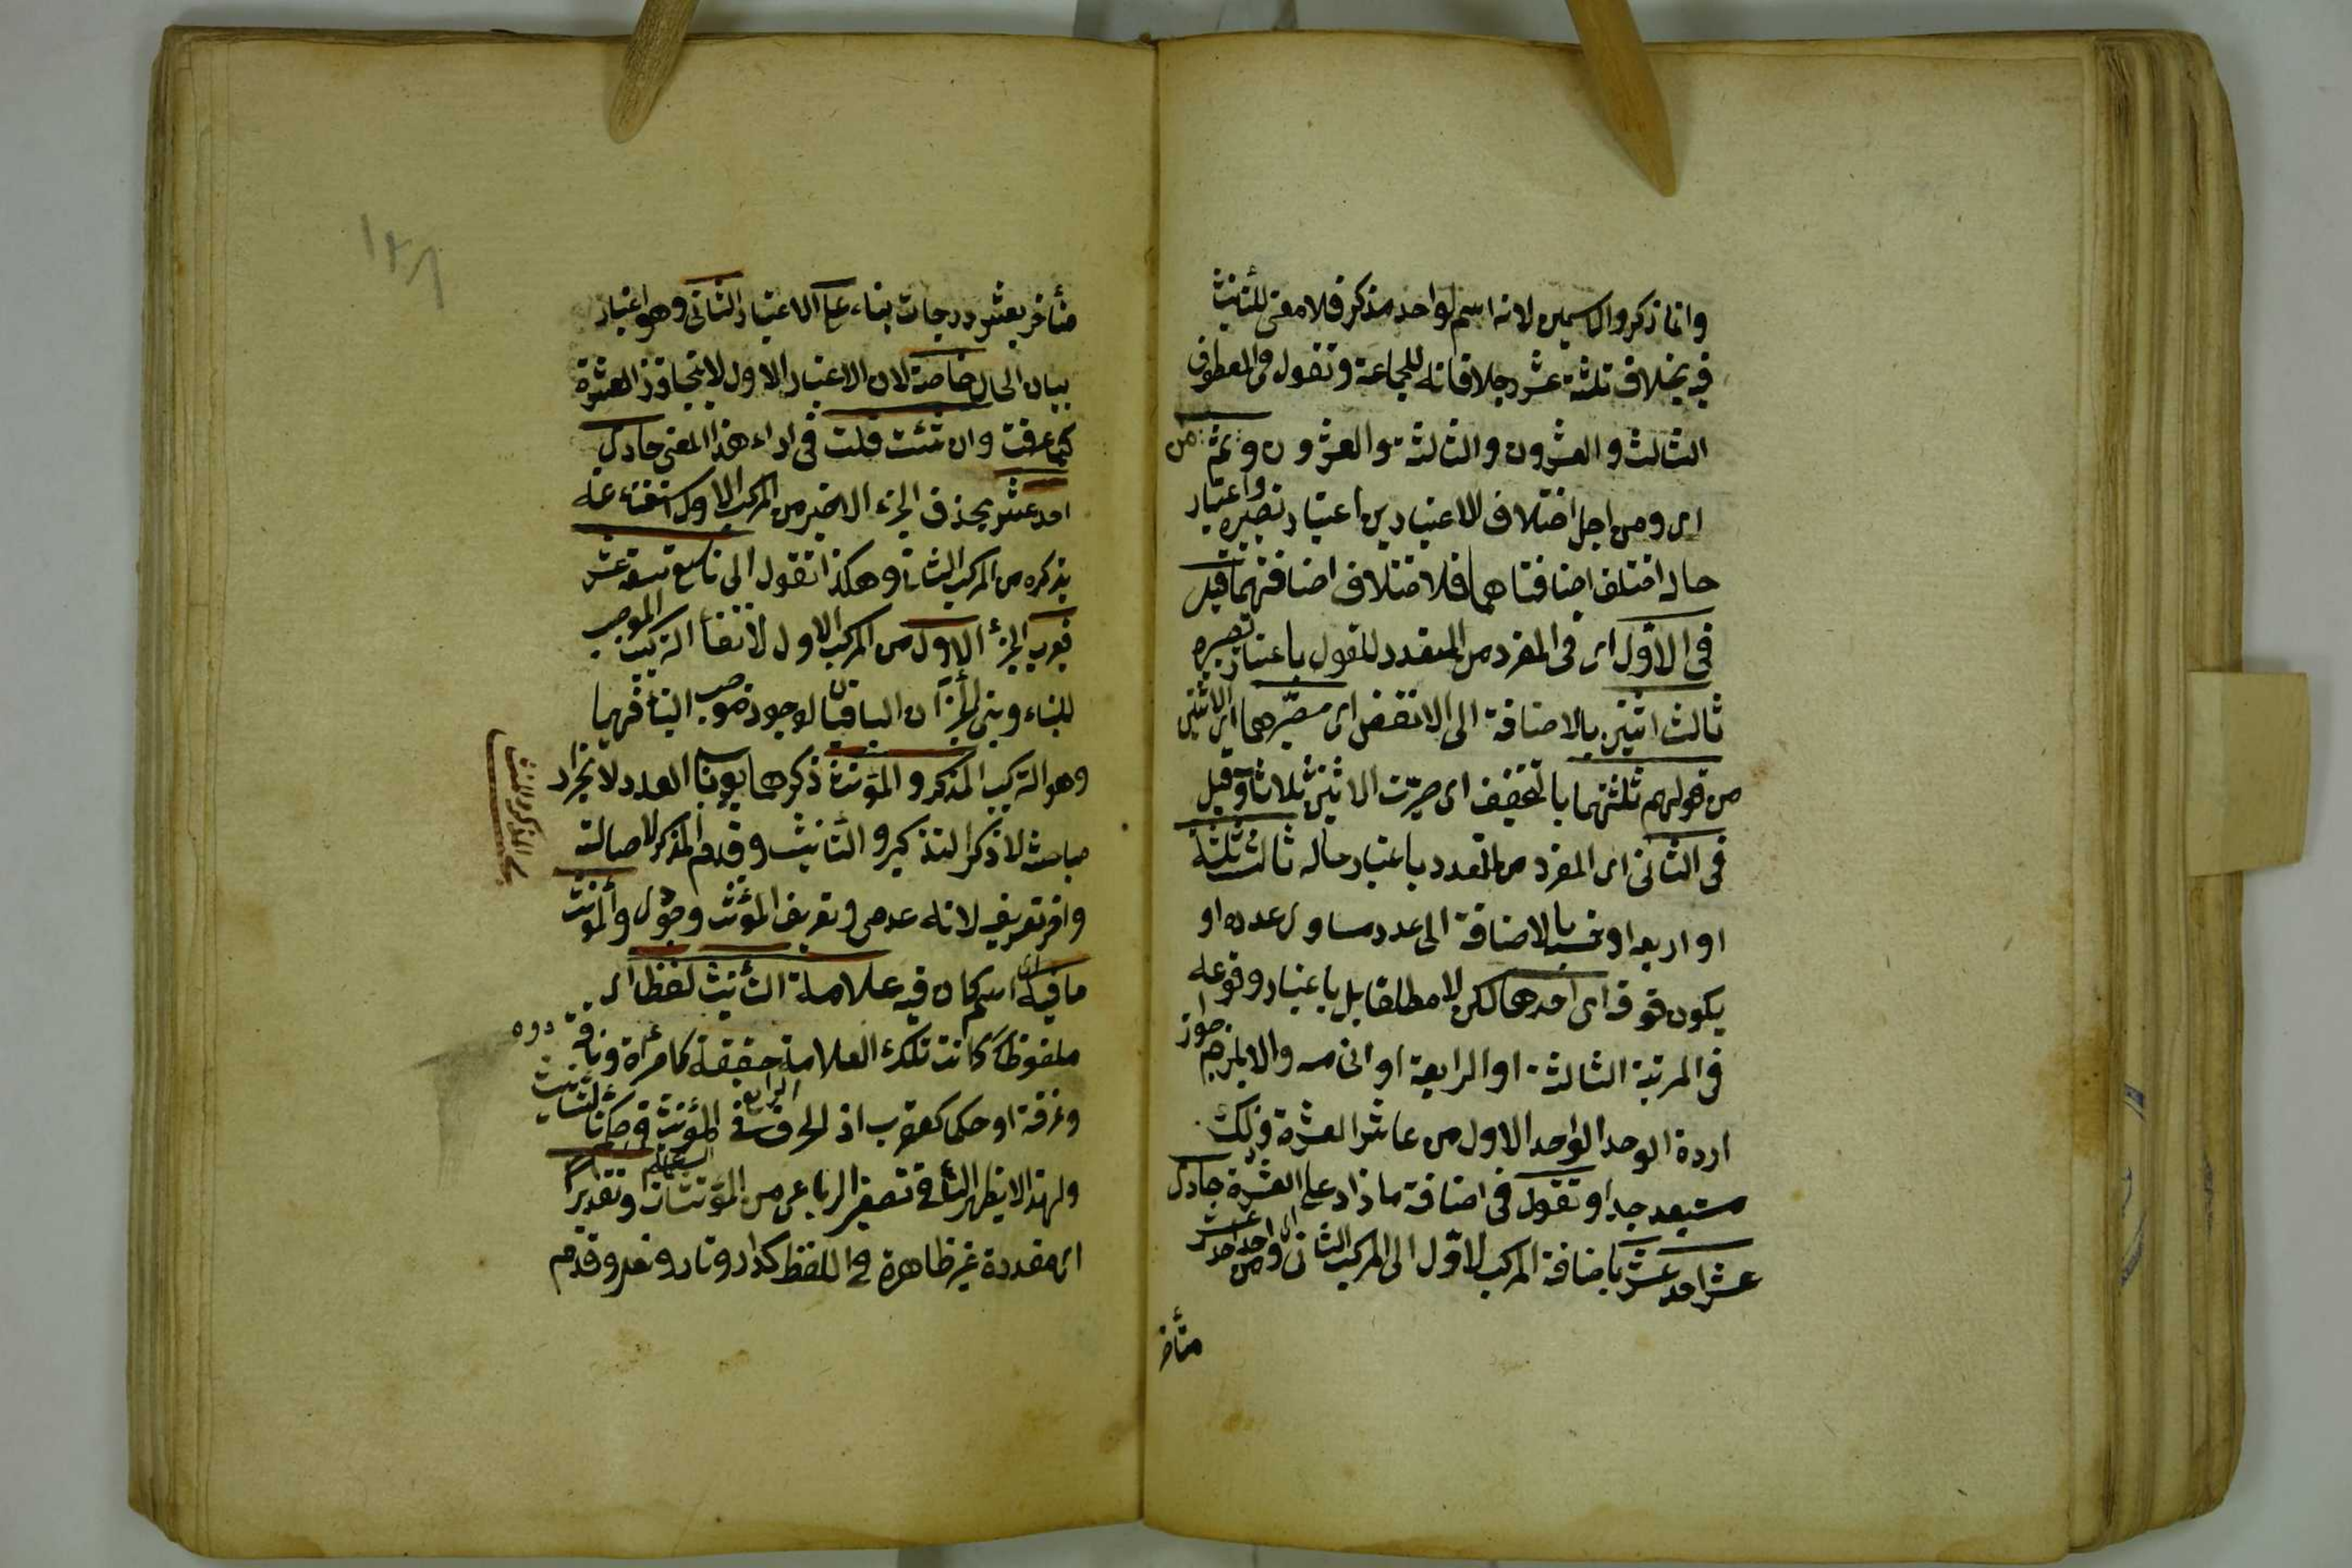 وانما ذكروا الاسمين لانه اسم لواحد مذكر فلا معنى للتأنيث
فيه بخلاف ثلثة عشر رجلا فانه للجماعة وتقول فى المعطوف
الثالث والعشرون والثالثة والعشرون ومن ثم
اى ومن اجل اختلاف الاعتبارين اعتبار تصييره واعتبار
حاله اختلف اضافتاهما فلاختلاف اضافتهما قيل
فى الاول اى فى المفرد من المتعدد المقول باعتبار تصييره
ثالث اثنين بالاضافة الى الانقص اى مصيّرهما اى الاثنين
من قولهم ثلثتهما بالتخفيف اى صيرت الاثنين ثلاثا وقيل
فى الثانى اى المفرد من المتعدد باعتبار حاله ثالث ثلثة
او اربعة او خمسة بالاضافة الى عدد مساوى عدده او
يكون فوقه اى احدهما لكن لا مطلقا بل باعتبار وقوعه
فى المرتبة الثالثة او الرابعة او الخامسة والا يلزم جواز
ارادة الواحد الاول من عاشر العشرة وذلك
مستبعد جدا وتقول فى اضافة ما زاد على العشرة حادى
عشر احد عشر باضافة المركب الاول الى المركب الثانى اى واحد من احد عشر
متأخر
١٢٨
متأخر بعشر درجات بناء على الاعتبار الثانى وهو اعتبار
بيان الحال خاصة لان الاعتبار الاول لا يتجاوز العشرة
كما عرفت وان شئت قلت فى اداء هذا المعنى حادى
احد عشر بحذف الجزء الاخير من المركب الاول استغناء عنه
بذكره من المركب الثانى وهكذا تقول الى تاسع تسعة عشر
فيعرب الجزء الاول من المركب الاول لانتفاء التركيب الموجب
للبناء وبنى الجزآن الباقيان لوجود موجب البناء فيهما
وهو التركيب المذكر والمؤنث ذكرهما بعد باب العدد لانجرار
مباحثه لا ذكر التذكير والتأنيث وقدم المذكر لاصالته
واخر تعريفه لانه عدمى وتعريف المؤنث وجودى والمؤنث
ما فيه اى اسم كان فيه علامة التأنيث لفظا اى
ملفوظة كانت تلك العلامة حقيقة كامرأة وناقة
وغرفة او حكما كعقرب اذ الحرف الرابع فى المؤنث فى حكم تاء التأنيث
ولهذا لا يظهر التاء فى تصغير الرباعى من المؤنثات السماعية وتقديرا
اى مقدرة غير ظاهرة فى اللفظ كدار ونار ونعل وقدم
بحث المذكر والمؤنث